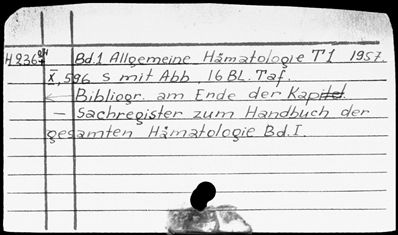 H236 Bd.1 Allgemeine Hämatologie T1 1957.
X, 596 S mit Abb, 16 BL. Taf.
← Bibliogr. am Ende der Kapitel.
— Sachregister zum Handbuch der
gesamten Hämatologie Bd.I.